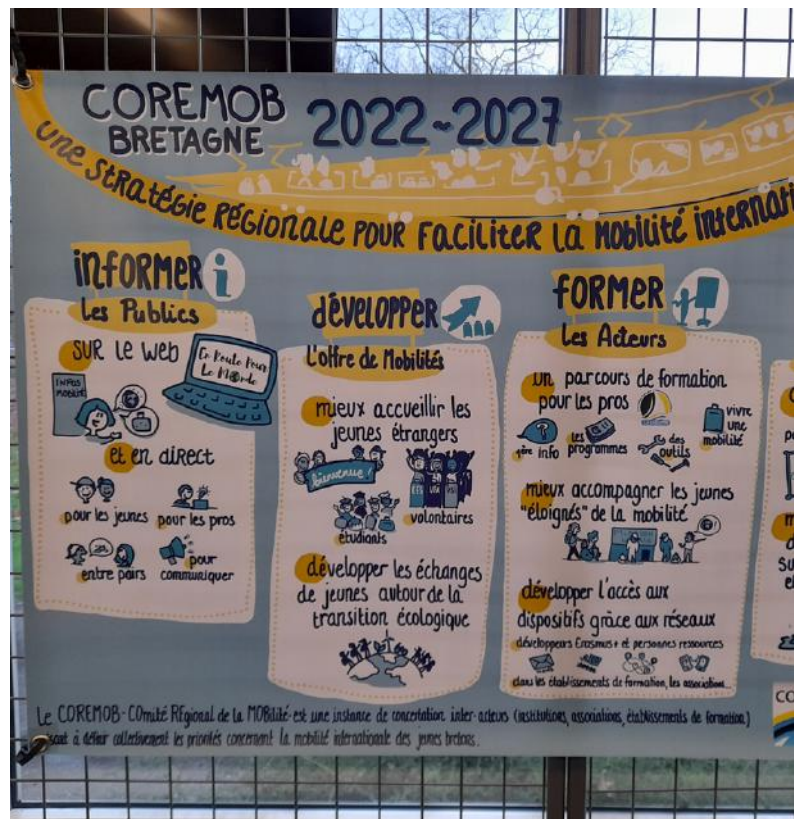 COREMOB
BRETAGNE
2022~2027
UNE STRATÉGIE RÉGIONALE POUR FACILITER LA MOBILITÉ INTERNATI
INFORMER
Les Publics
SUR LE WEB
En Route Pour
Le Monde
INFOS
MOBILITÉ
et en direct
pour les jeunes
pour les pros
entre pairs
pour
communiquer
développer
L'offre de Mobilités
mieux accueillir les
jeunes étrangers
bienvenue !
étudiants
volontaires
développer les échanges
de jeunes autour de la
transition écologique
FORMER
Les Acteurs
un parcours de formation
pour les pros
1ère info
les
programmes
des
outils
vivre
une
mobilité
mieux accompagner les jeunes
"éloignés" de la mobilité
développer l'accès aux
dispositifs grâce aux réseaux
développeurs Erasmus+ et personnes ressources
dans les établissements de formation, les associations...
Le COREMOB - COmité RÉgional de la MOBilité - est une instance de concertation inter-acteurs (institutions, associations, établissements de formation)
à définir collectivement les priorités concernant la mobilité internationale des jeunes bretons.
CO